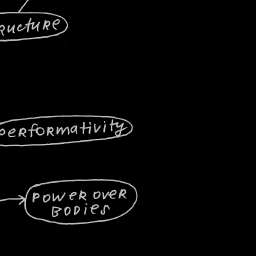 ructure
performativity
power over
bodies